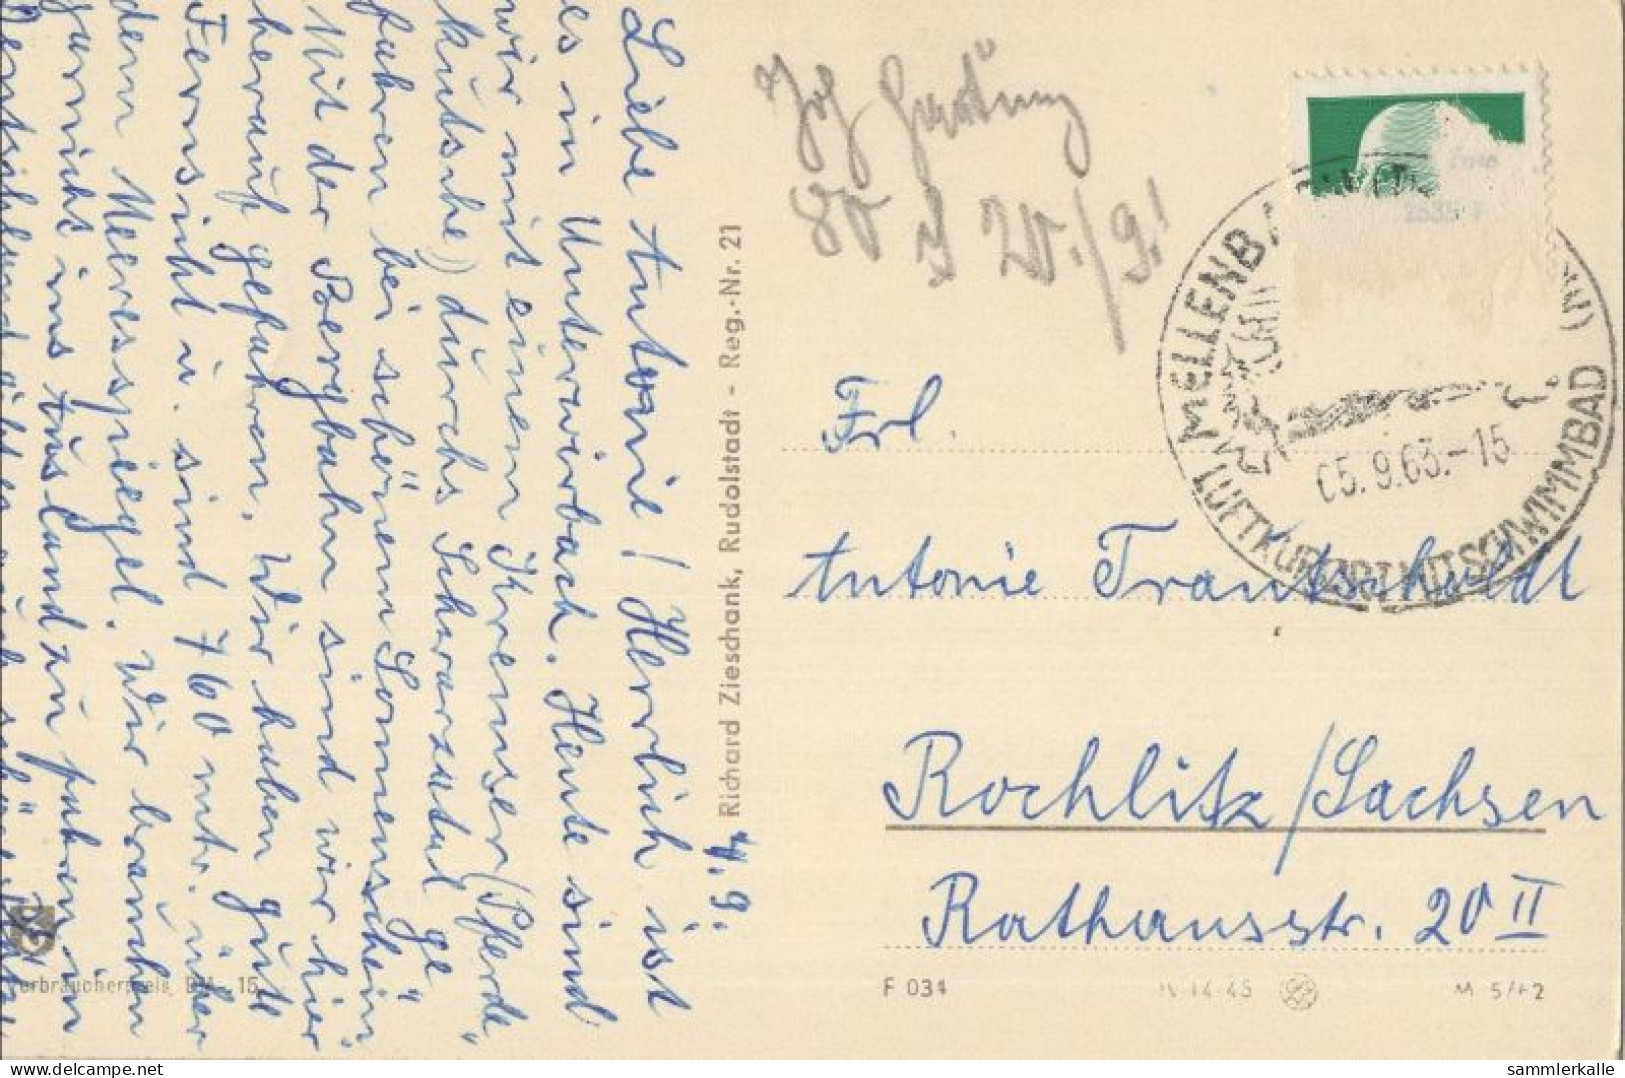 4. 9.
Liebe Antonie! Herrlich ist
es in Unterwirbach. Heute sind
wir mit einem Kremser (Pferde"
kutsche) durchs Schwarzatal ge"
fahren bei schönem Sonnenschein
Mit der Bergbahn sind wir hier
herauf gefahren. Wir haben gute
Fernsicht u. sind 760 mtr. über
dem Meeresspiegel. Wir brauchen
garnicht ins Ausland zu fahren in
Richard Zieschank, Rudolstadt - Reg.-Nr. 21
80 20./9.!
MELLENBA
LUFTKURORT MIT SCHWIMMBAD
05.9.63.-15
Frl.
Antonie Trautschaldt
Rochlitz/Sachsen
Rathausstr. 20 II
F 034
M 5/62